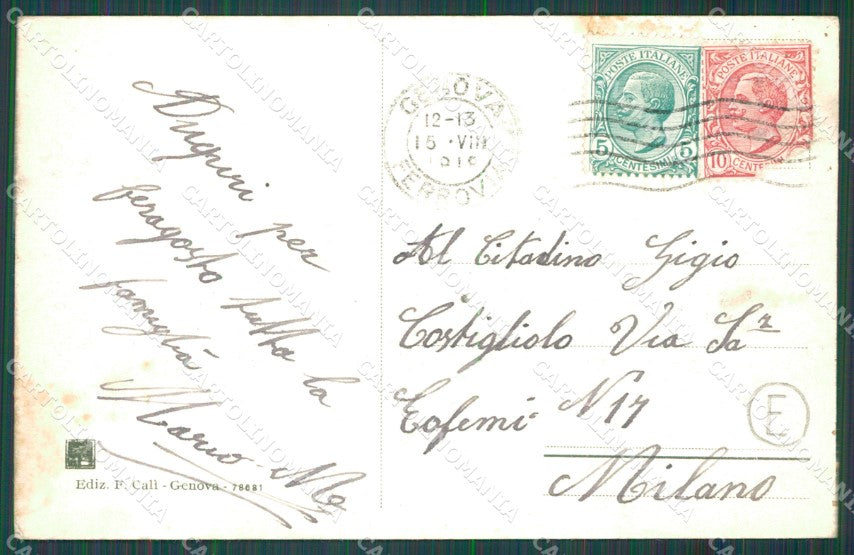 Auguri per
feragosto tutta la
famiglia
Mario
Ediz. F. Calì - Genova - 78681
GENOVA
12-13
15 · VIII
FERROVIA
POSTE ITALIANE
5 CENTESIMI 5
POSTE ITALIANE
10 CENTES
Al Citadino Gigio
Costigliolo Via Sa
Eofemi N 17
Milano
E
CARTOLINOMANIA